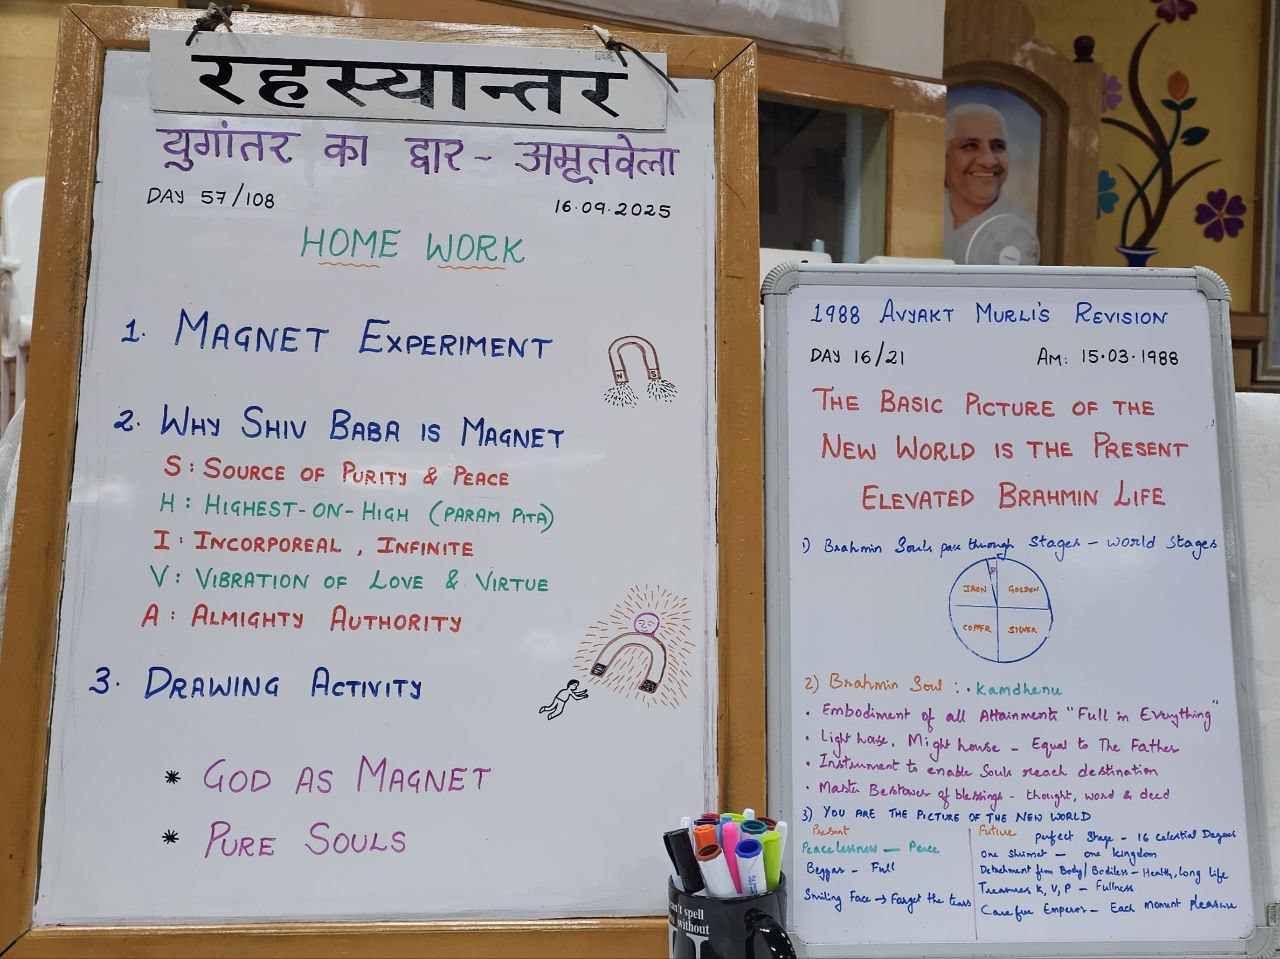 रहस्यान्तर
युगांतर का द्वार - अमृतवेला
DAY 57/108
16.09.2025
HOME WORK
1. MAGNET EXPERIMENT
N S
2. WHY SHIV BABA IS MAGNET
S : SOURCE OF PURITY & PEACE
H : HIGHEST-ON-HIGH (PARAM PITA)
I : INCORPOREAL, INFINITE
V : VIBRATION OF LOVE & VIRTUE
A : ALMIGHTY AUTHORITY
3. DRAWING ACTIVITY
* GOD AS MAGNET
* PURE SOULS
1988 AVYAKT MURLI'S REVISION
DAY 16/21
AM: 15.03.1988
THE BASIC PICTURE OF THE
NEW WORLD IS THE PRESENT
ELEVATED BRAHMIN LIFE
1) Brahmin Souls pass through Stages - World Stages
IRON GOLDEN
COPPER SILVER
2) Brahmin Soul : • Kamdhenu
• Embodiment of all Attainments "Full in Everything"
• Light house, Might house - Equal to The Father
• Instrument to enable Souls reach destination
• Master Bestower of blessings - thought, word & deed
3) YOU ARE THE PICTURE OF THE NEW WORLD
Present
Peacelessness - Peace
Beggar - Full
Smiling Face → Forget the tears
Future perfect Stage - 16 Celestial Degrees
One Shrimat - one kingdom
Detachment from Body/Bodiless - Health, long life
Treasures K, V, P - Fullness
Carefree Emperor - Each moment pleasure
can't spell
without